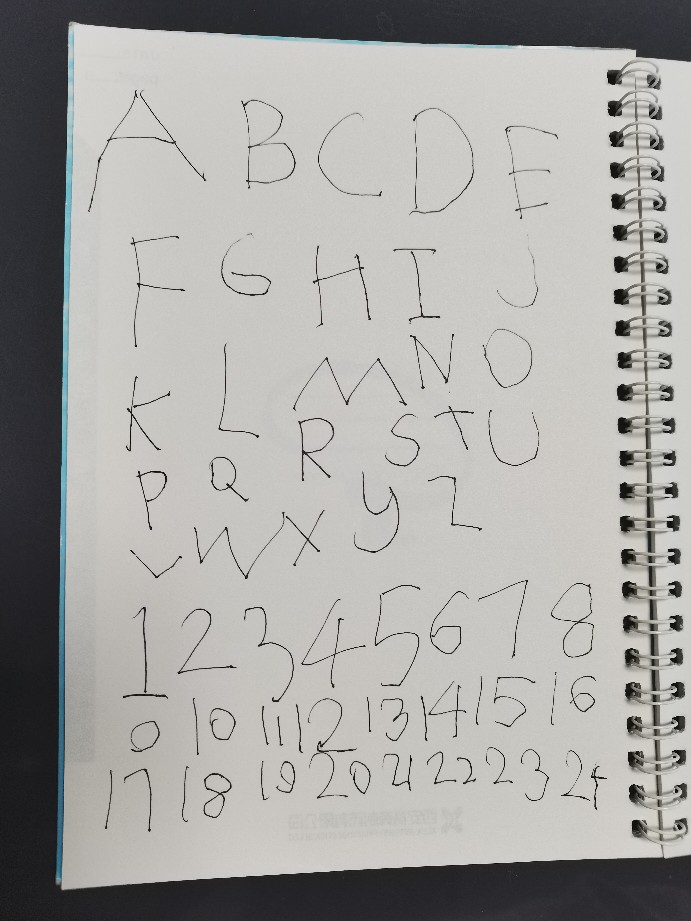 A B C D E
F G H I J
K L M N O
P Q R S T U
V W X Y Z
1 2 3 4 5 6 7 8
9 10 11 12 13 14 15 16
17 18 19 20 21 22 23 24